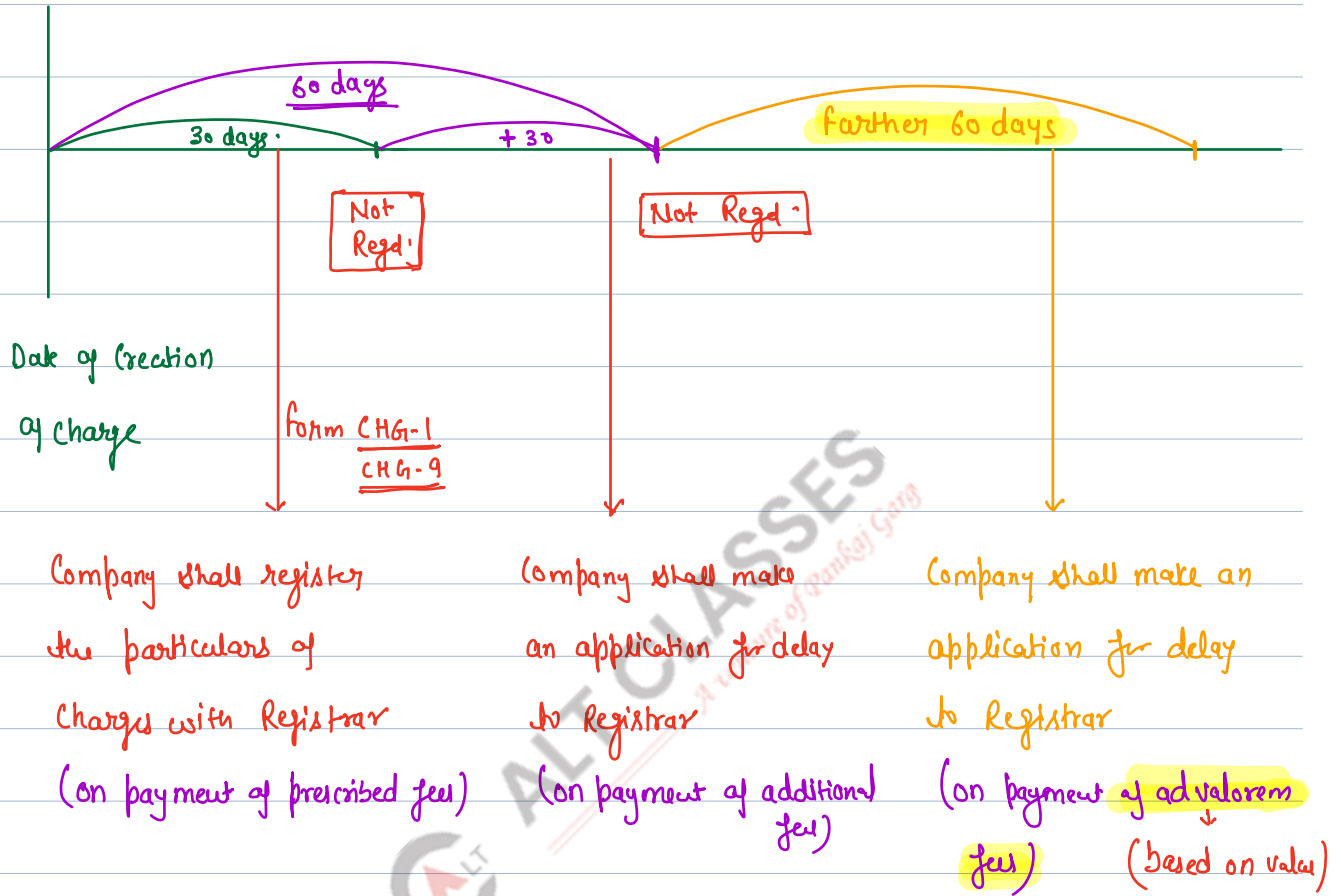 60 days
30 days.
+ 30
farther 60 days
Not
Regd.
Not Regd.
Date of Creation
of charge
form CHG-1
CHG-9
Company shall register
the particulars of
Charges with Registrar
(on payment of prescribed fees)
Company shall make
an application for delay
to Registrar
(on payment of additional
fees)
Company shall make an
application for delay
to Registrar
(on payment of advalorem
fees)
(based on value)
ALT CLASSES
A venture of Pankaj Garg
ALT